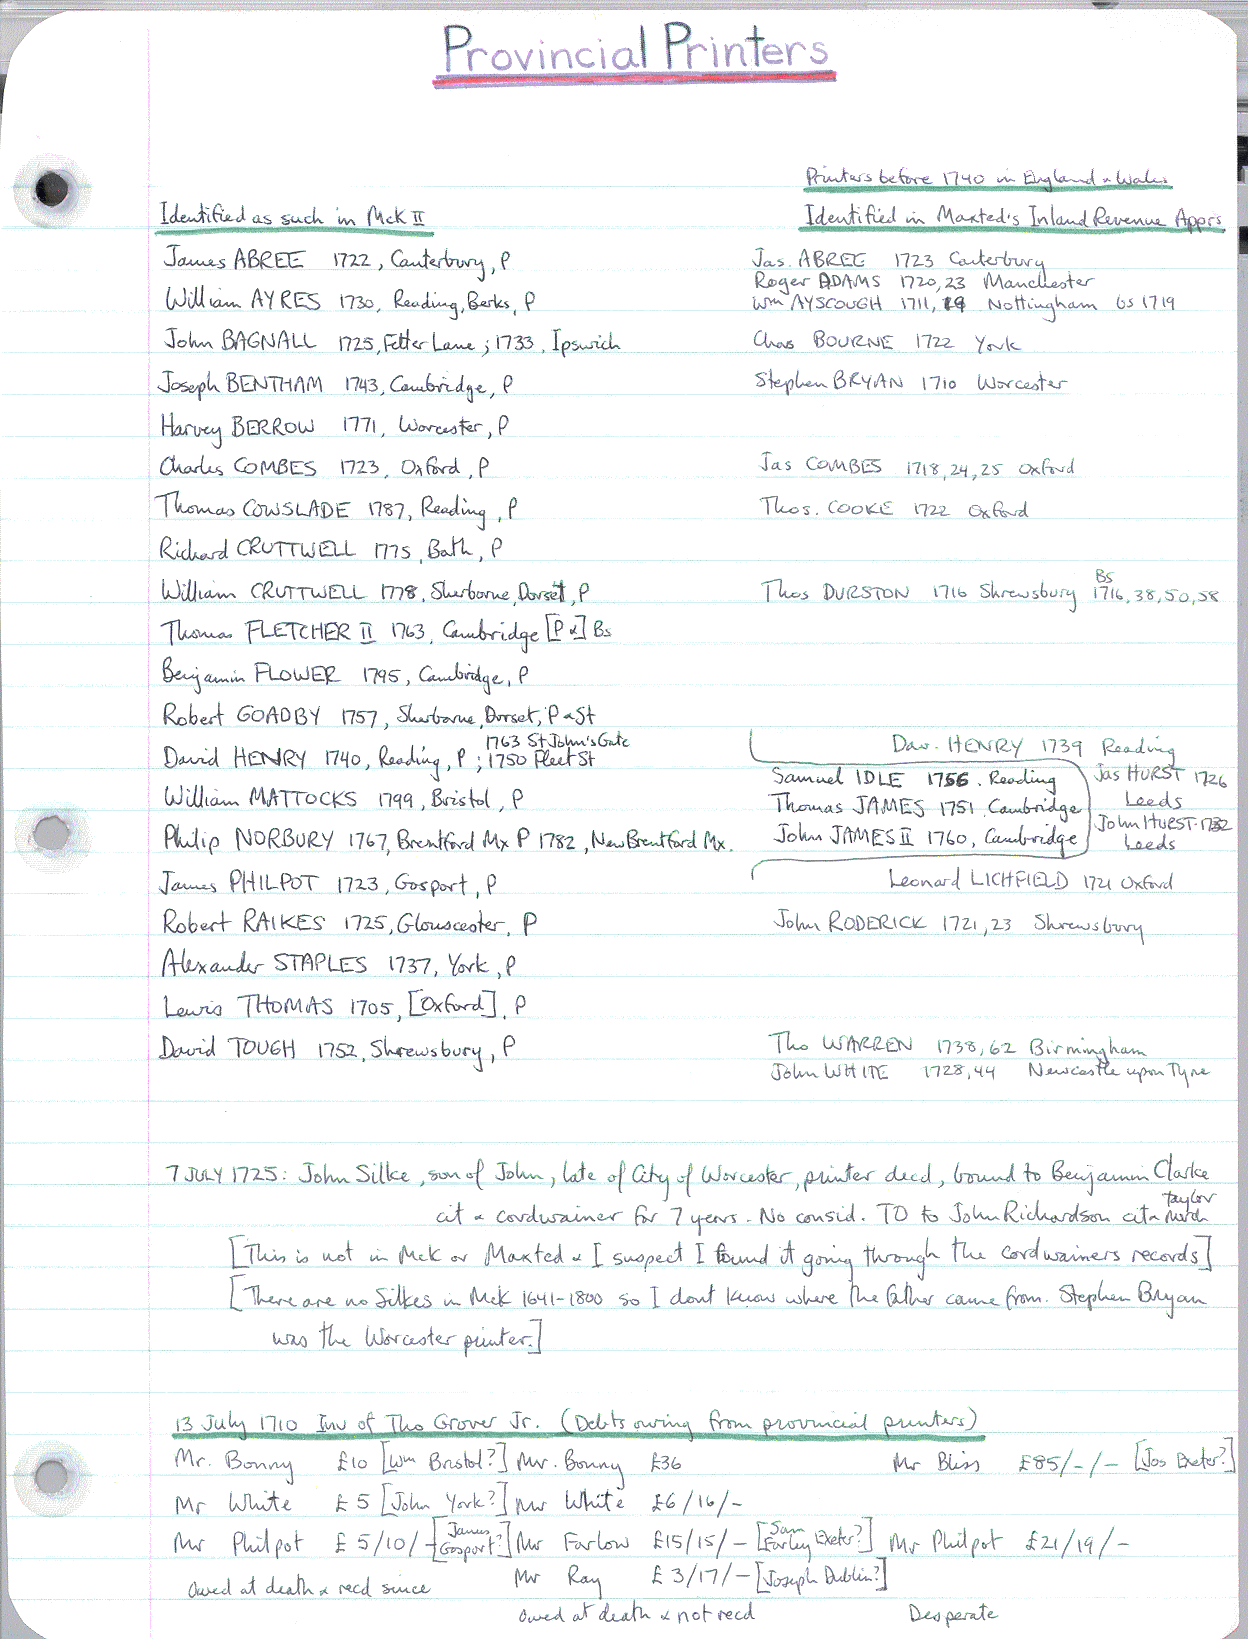 Provincial Printers
Printers before 1740 in England & Wales
Identified as such in McK II
Identified in Maxted's Inland Revenue Apprs
James ABREE 1722, Canterbury, P
Jas. ABREE 1723 Canterbury
Roger ADAMS 1720, 23 Manchester
William AYRES 1730, Reading, Berks, P
Wm AYSCOUGH 1711, 19 Nottingham Gs 1719
John BAGNALL 1725, Fetter Lane; 1733, Ipswich
Chas BOURNE 1722 York
Joseph BENTHAM 1743, Cambridge, P
Stephen BRYAN 1710 Worcester
Harvey BERROW 1771, Worcester, P
Charles COMBES 1723, Oxford, P
Jas COMBES 1718, 24, 25 Oxford
Thomas COWSLADE 1787, Reading, P
Thos. COOKE 1722 Oxford
Richard CRUTTWELL 1775, Bath, P
William CRUTTWELL 1778, Sherborne, Dorset, P
Bs
Thos DURSTON 1716 Shrewsbury 1716, 38, 50, 58
Thomas FLETCHER II 1763, Cambridge [P &] Bs
Benjamin FLOWER 1795, Cambridge, P
Robert GOADBY 1757, Sherborne, Dorset, P & St
1763 St John's Gate
David HENRY 1740, Reading, P; 1750 Fleet St
Dav. HENRY 1739 Reading
Samuel IDLE 1756. Reading
Jas HURST 1726
Leeds
William MATTOCKS 1799, Bristol, P
Thomas JAMES 1751, Cambridge
John HURST 1732
Leeds
Philip NORBURY 1767, Brentford Mx P 1782, New Brentford Mx.
John JAMES II 1760, Cambridge
James PHILPOT 1723, Gosport, P
Leonard LICHFIELD 1721 Oxford
Robert RAIKES 1725, Glouscester, P
John RODERICK 1721, 23 Shrewsbury
Alexander STAPLES 1737, York, P
Lewis THOMAS 1705, [Oxford], P
David TOUGH 1752, Shrewsbury, P
Tho WARREN 1738, 62 Birmingham
John WHITE 1728, 44 Newcastle upon Tyne
7 JULY 1725: John Silke, son of John, late of City of Worcester, printer decd, bound to Benjamin Clarke
cit & cordwainer for 7 years. No consid. TO to John Richardson cit &
taylor
[This is not in McK or Maxted & I suspect I found it going through the cordwainers records]
[There are no Silkes in McK 1641-1800 so I dont know where the father came from. Stephen Bryan
was the Worcester printer.]
13 July 1710 Inv of Tho Grover Jr. (Debts owing from provincial printers)
Mr. Bonny £10 [Wm Bristol?] Mr. Bonny £36 Mr Bliss £85/-/- [Jos Exeter?]
Mr White £5 [John York?] Mr White £6/16/-
Mr Philpot £5/10/- [James Gosport?] Mr Farlow £15/15/- [Sam Farley Exeter?] Mr Philpot £21/19/-
Mr Ray £3/17/- [Joseph Dublin?]
owed at death & recd since
owed at death & not recd Desperate